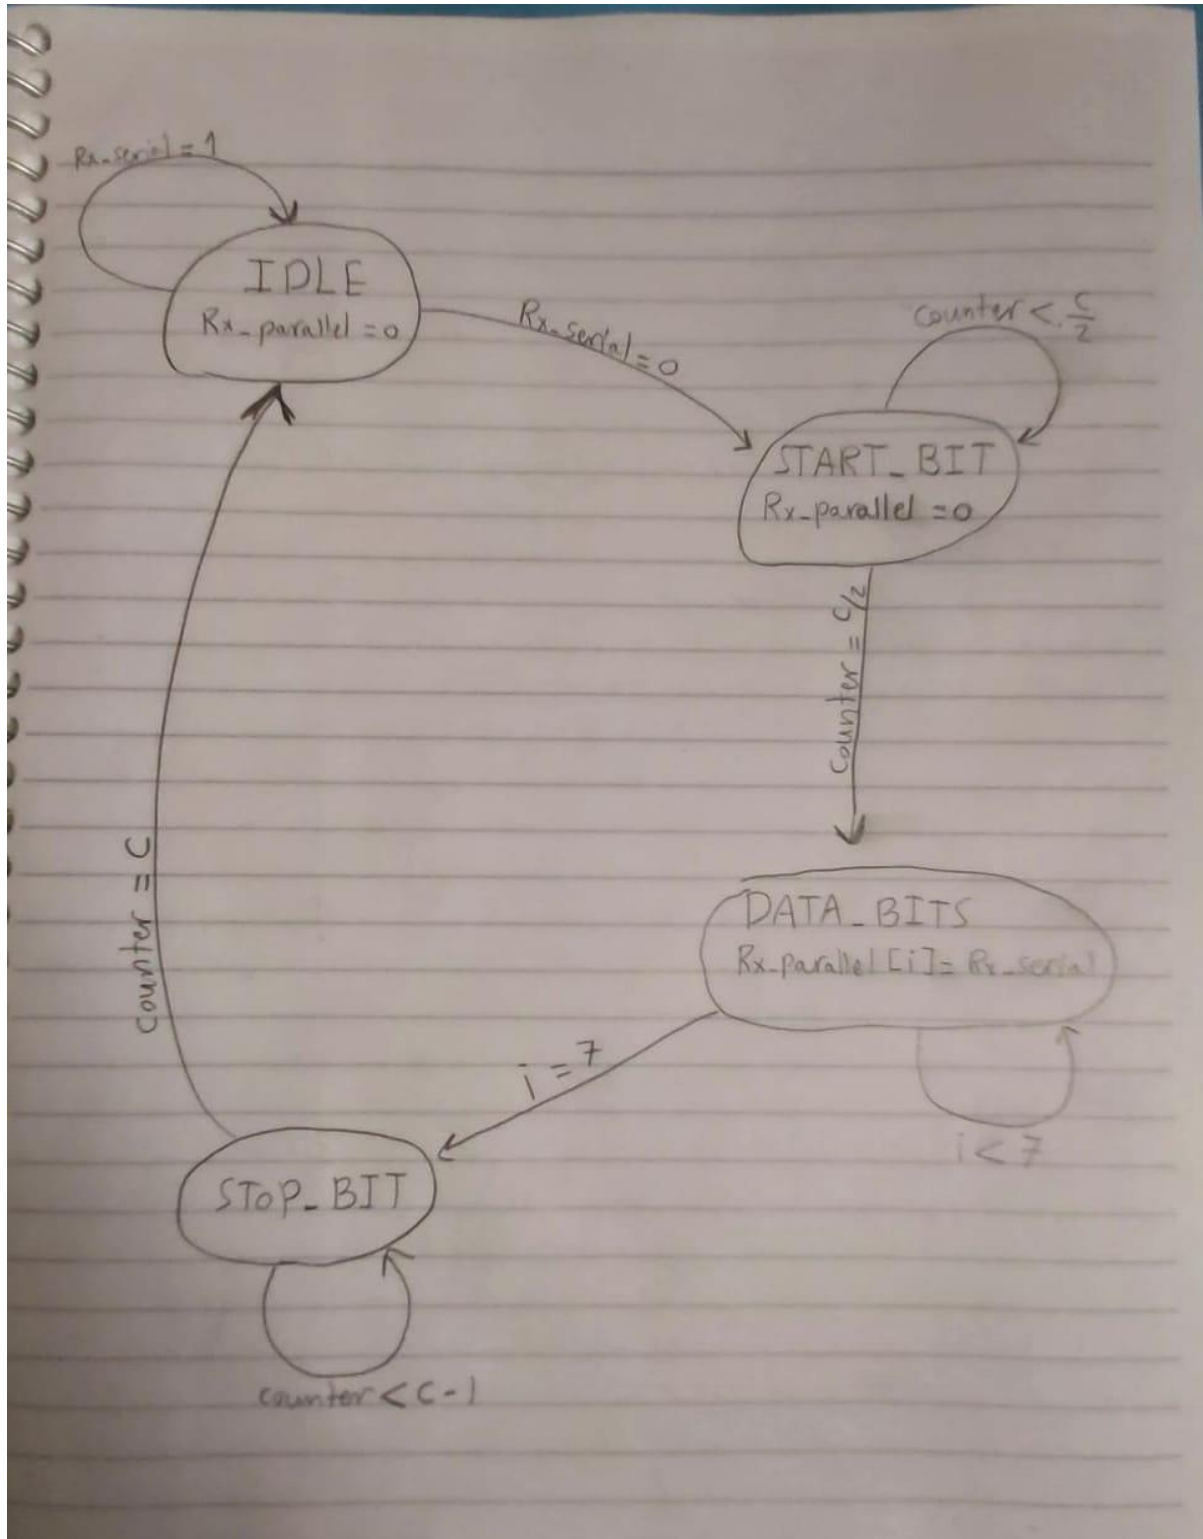 Rx_serial = 1
IDLE
Rx_parallel = 0
Rx_serial = 0
counter < C/2
START_BIT
Rx_parallel = 0
counter = C/2
DATA_BITS
Rx_parallel [i] = Rx_serial
i < 7
i = 7
STOP_BIT
counter < C-1
counter = C